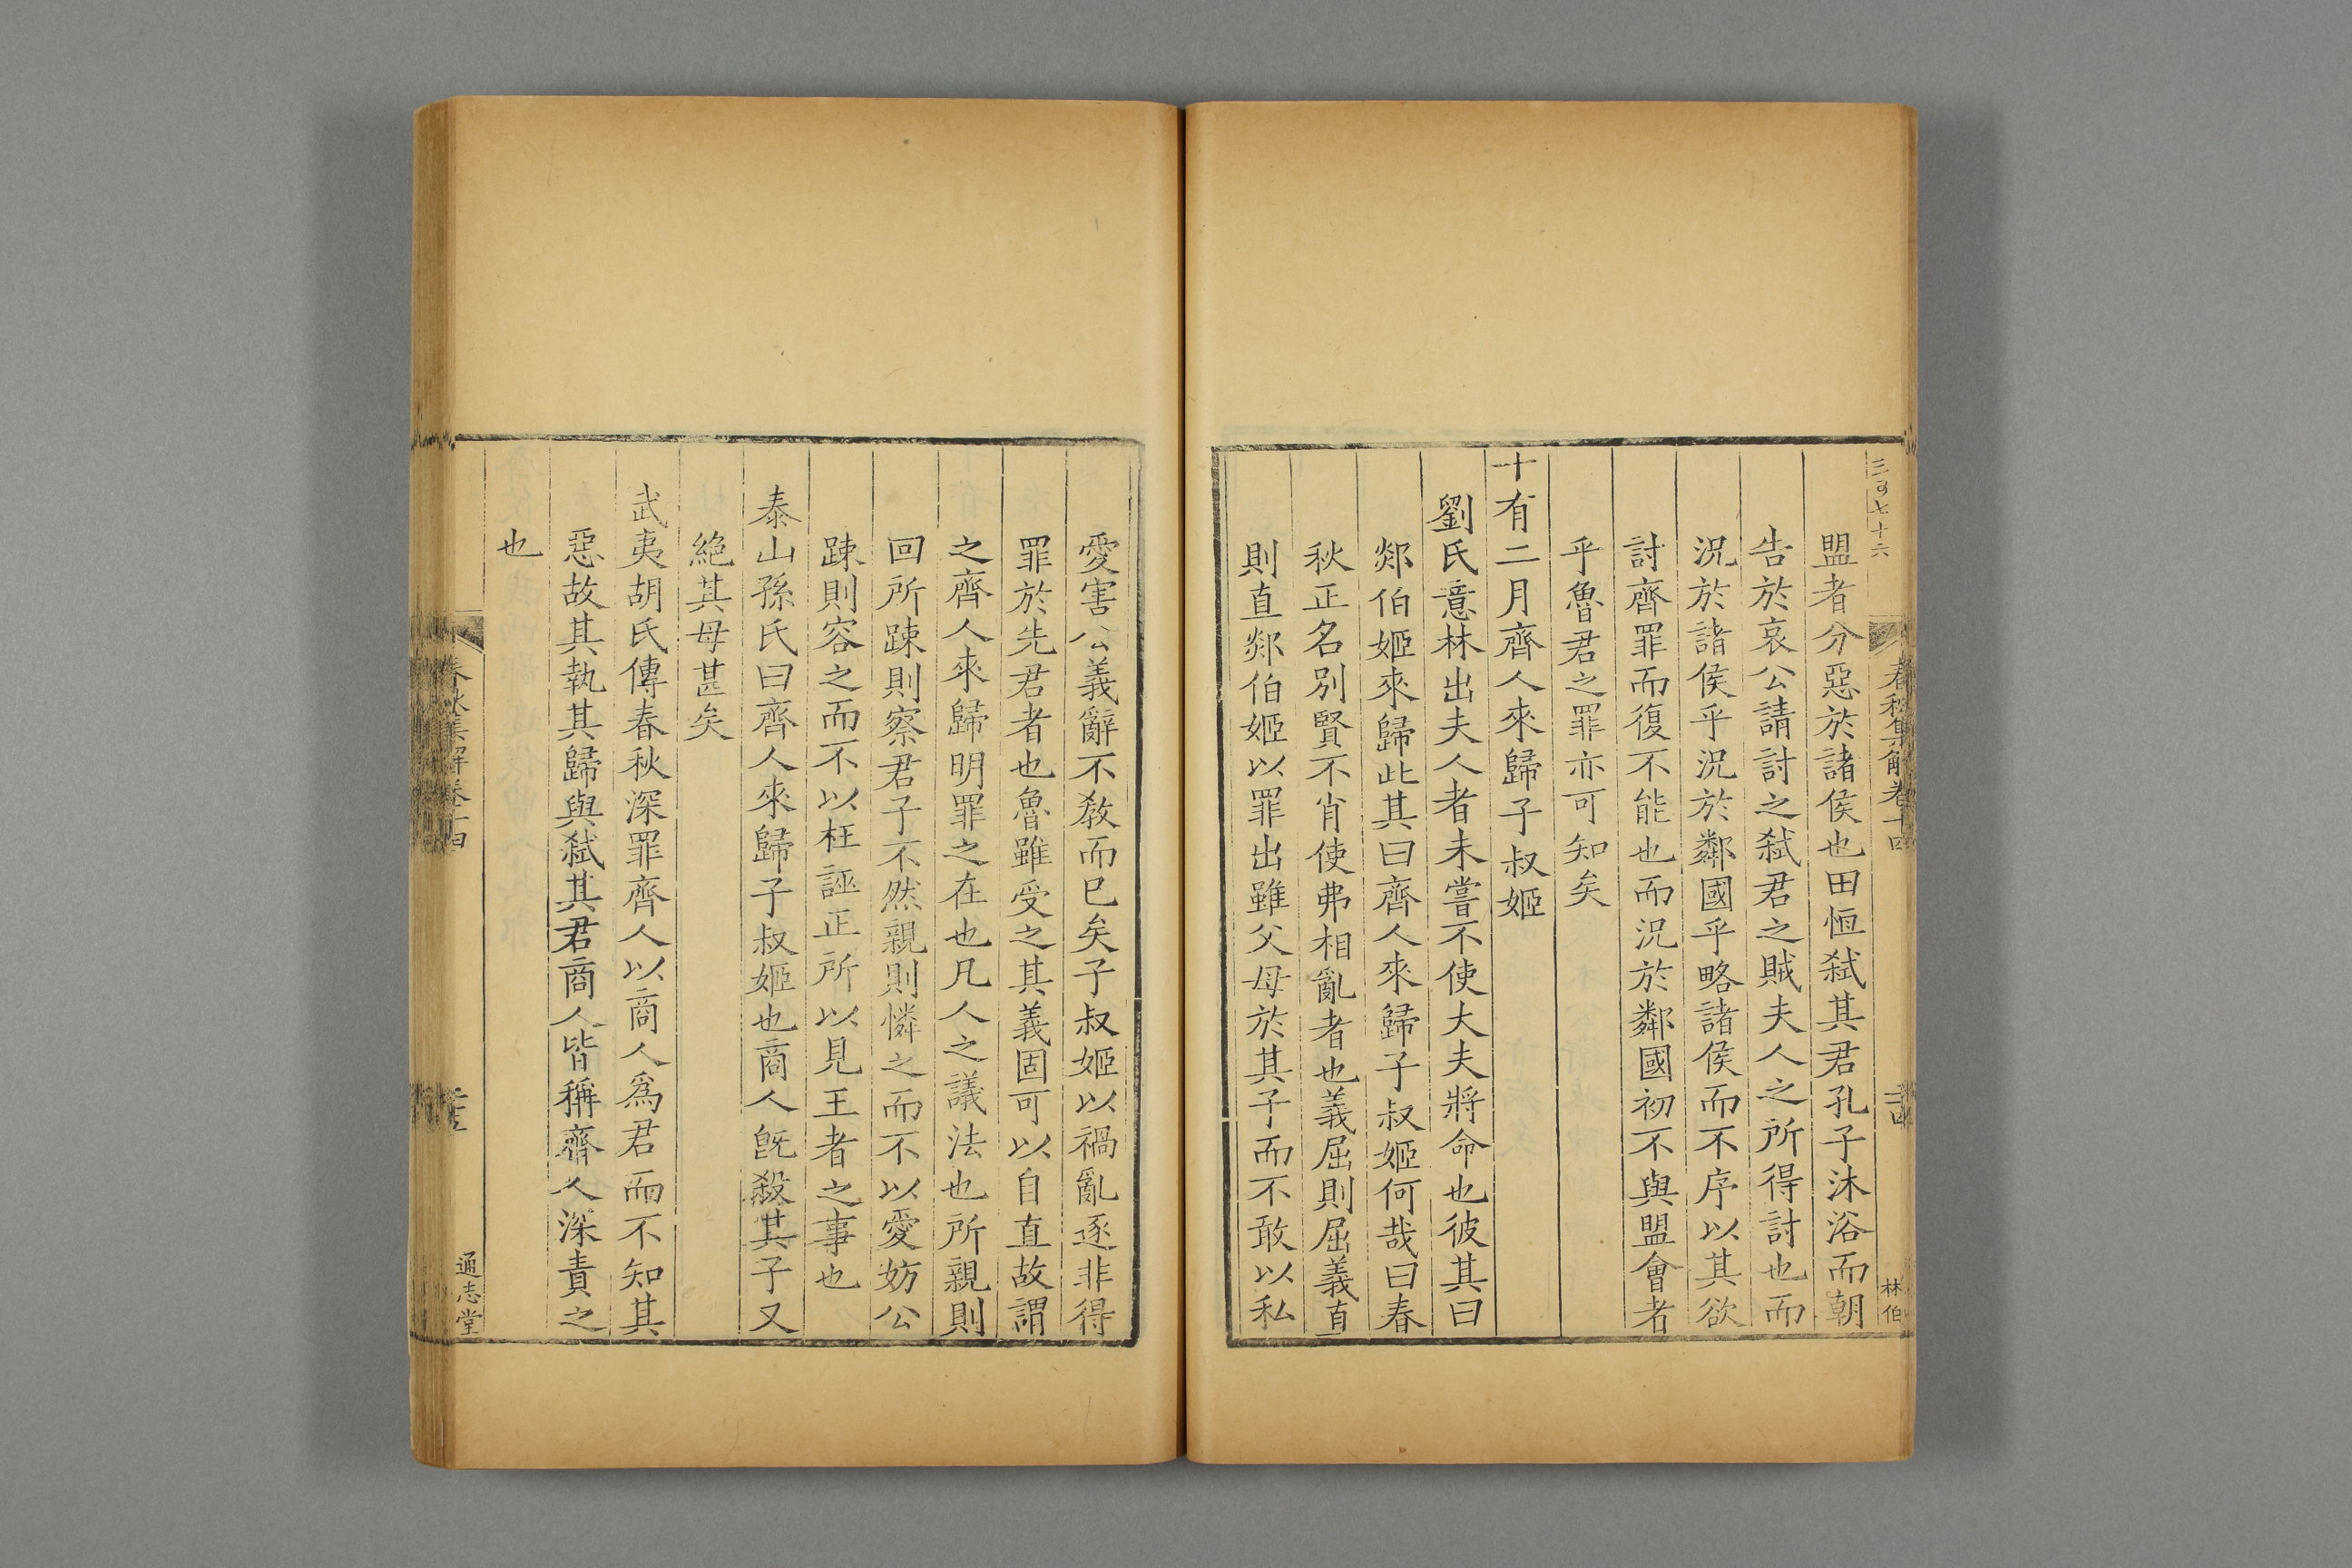 盟者分惡於諸侯也田恒弑其君孔子沐浴而朝
告於哀公請討之弑君之賊夫人之所得討也而
況於諸侯乎況於鄰國乎略諸侯而不序以其欲
討齊罪而復不能也而況於鄰國初不與盟會者
乎魯君之罪亦可知矣
十有二月齊人來歸子叔姬
劉氏意林出夫人者未嘗不使大夫將命也彼其曰
郯伯姬來歸此其曰齊人來歸子叔姬何哉曰春
秋正名別賢不肖使弗相亂者也義屈則屈義直
則直郯伯姬以罪出雖父母於其子而不敢以私
愛害公義辭不教而已矣子叔姬以禍亂逐非得
罪於先君者也魯雖受之其義固可以自直故謂
之齊人來歸明罪之在也凡人之議法也所親則
回所踈則察君子不然親則憐之而不以愛妨公
踈則容之而不以枉誣正所以見王者之事也
泰山孫氏曰齊人來歸子叔姬也商人旣殺其子又
絕其母甚矣
武夷胡氏傳春秋深罪齊人以商人爲君而不知其
惡故其執其歸與弑其君商人皆稱齊人深責之
也
三百七十六
春秋集解卷十四
二十四
林伯
春秋集解卷十四
二十五
通志堂